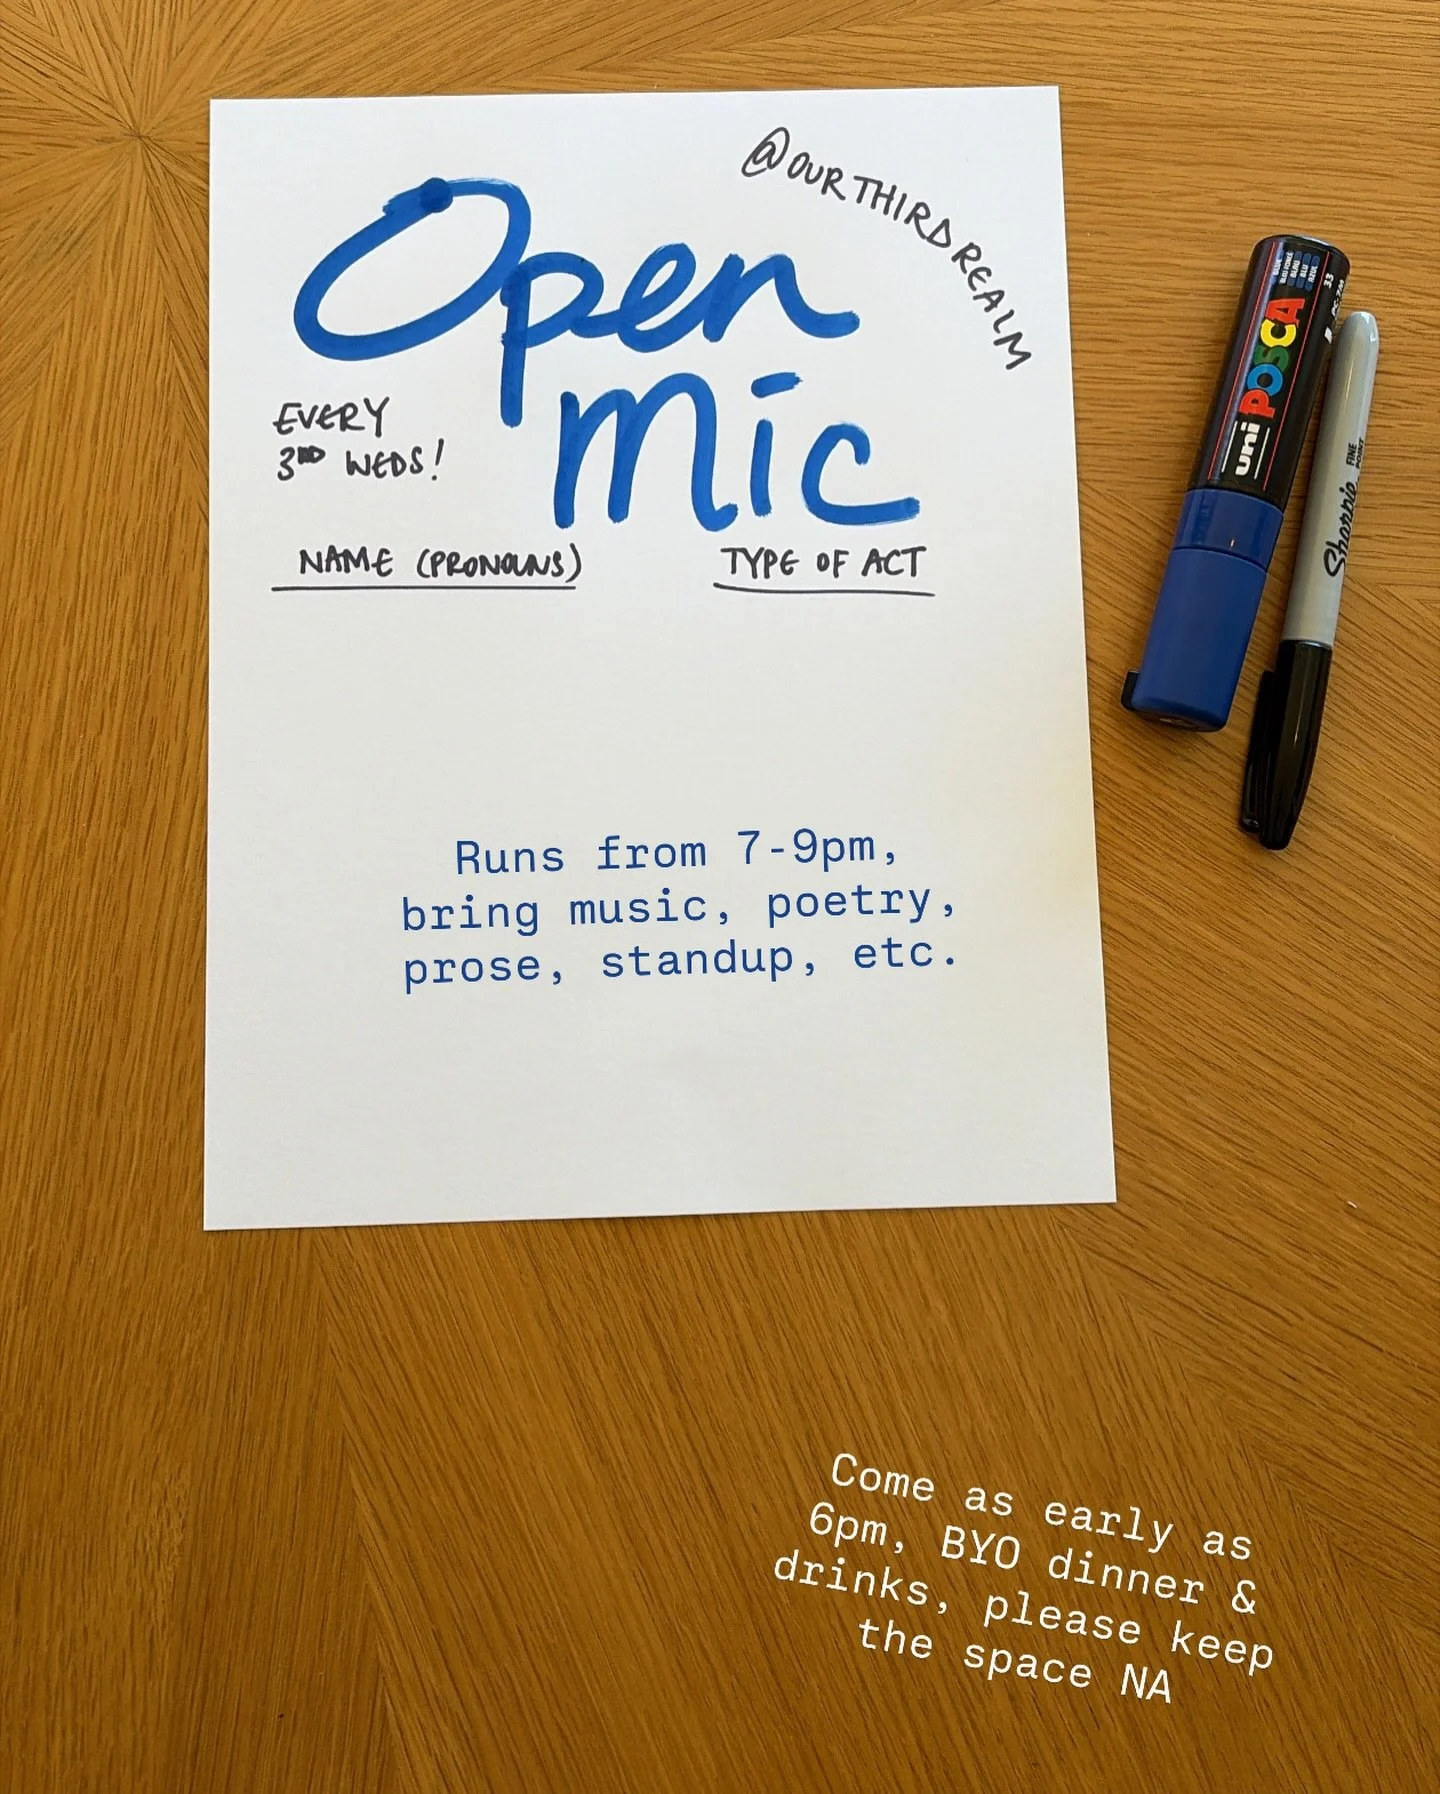 @OURTHIRDREALM
Open
mic
EVERY
3RD WEDS!
NAME (PRONOUNS)
TYPE OF ACT
Runs from 7-9pm,
bring music, poetry,
prose, standup, etc.
uni POSCA
Sharpie
FINE
POINT
Come as early as
6pm, BYO dinner &
drinks, please keep
the space NA